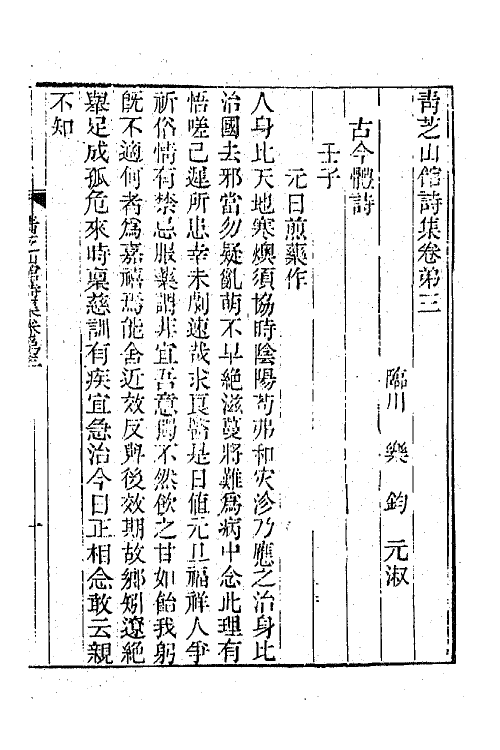 靑芝山館詩集卷第三
臨川 樂鈞 元淑
古今體詩
壬子
元日煎藥作
人身比天地寒燠須協時陰陽苟弗和灾沴乃應之治身比
治國去邪當勿疑亂萌不早絕滋蔓將難爲病中念此理有
悟嗟已遲所患幸未劇速哉求良醫是日值元旦福祥人爭
祈俗情有禁忌服藥謂非宜吾意獨不然飲之甘如飴我躬
旣不適何者爲嘉禧焉能舍近效反與後效期故鄉夘遼絕
舉足成孤危來時稟慈訓有疾宜急治今日正相念敢云親
不知
靑芝山館詩集卷第三
一